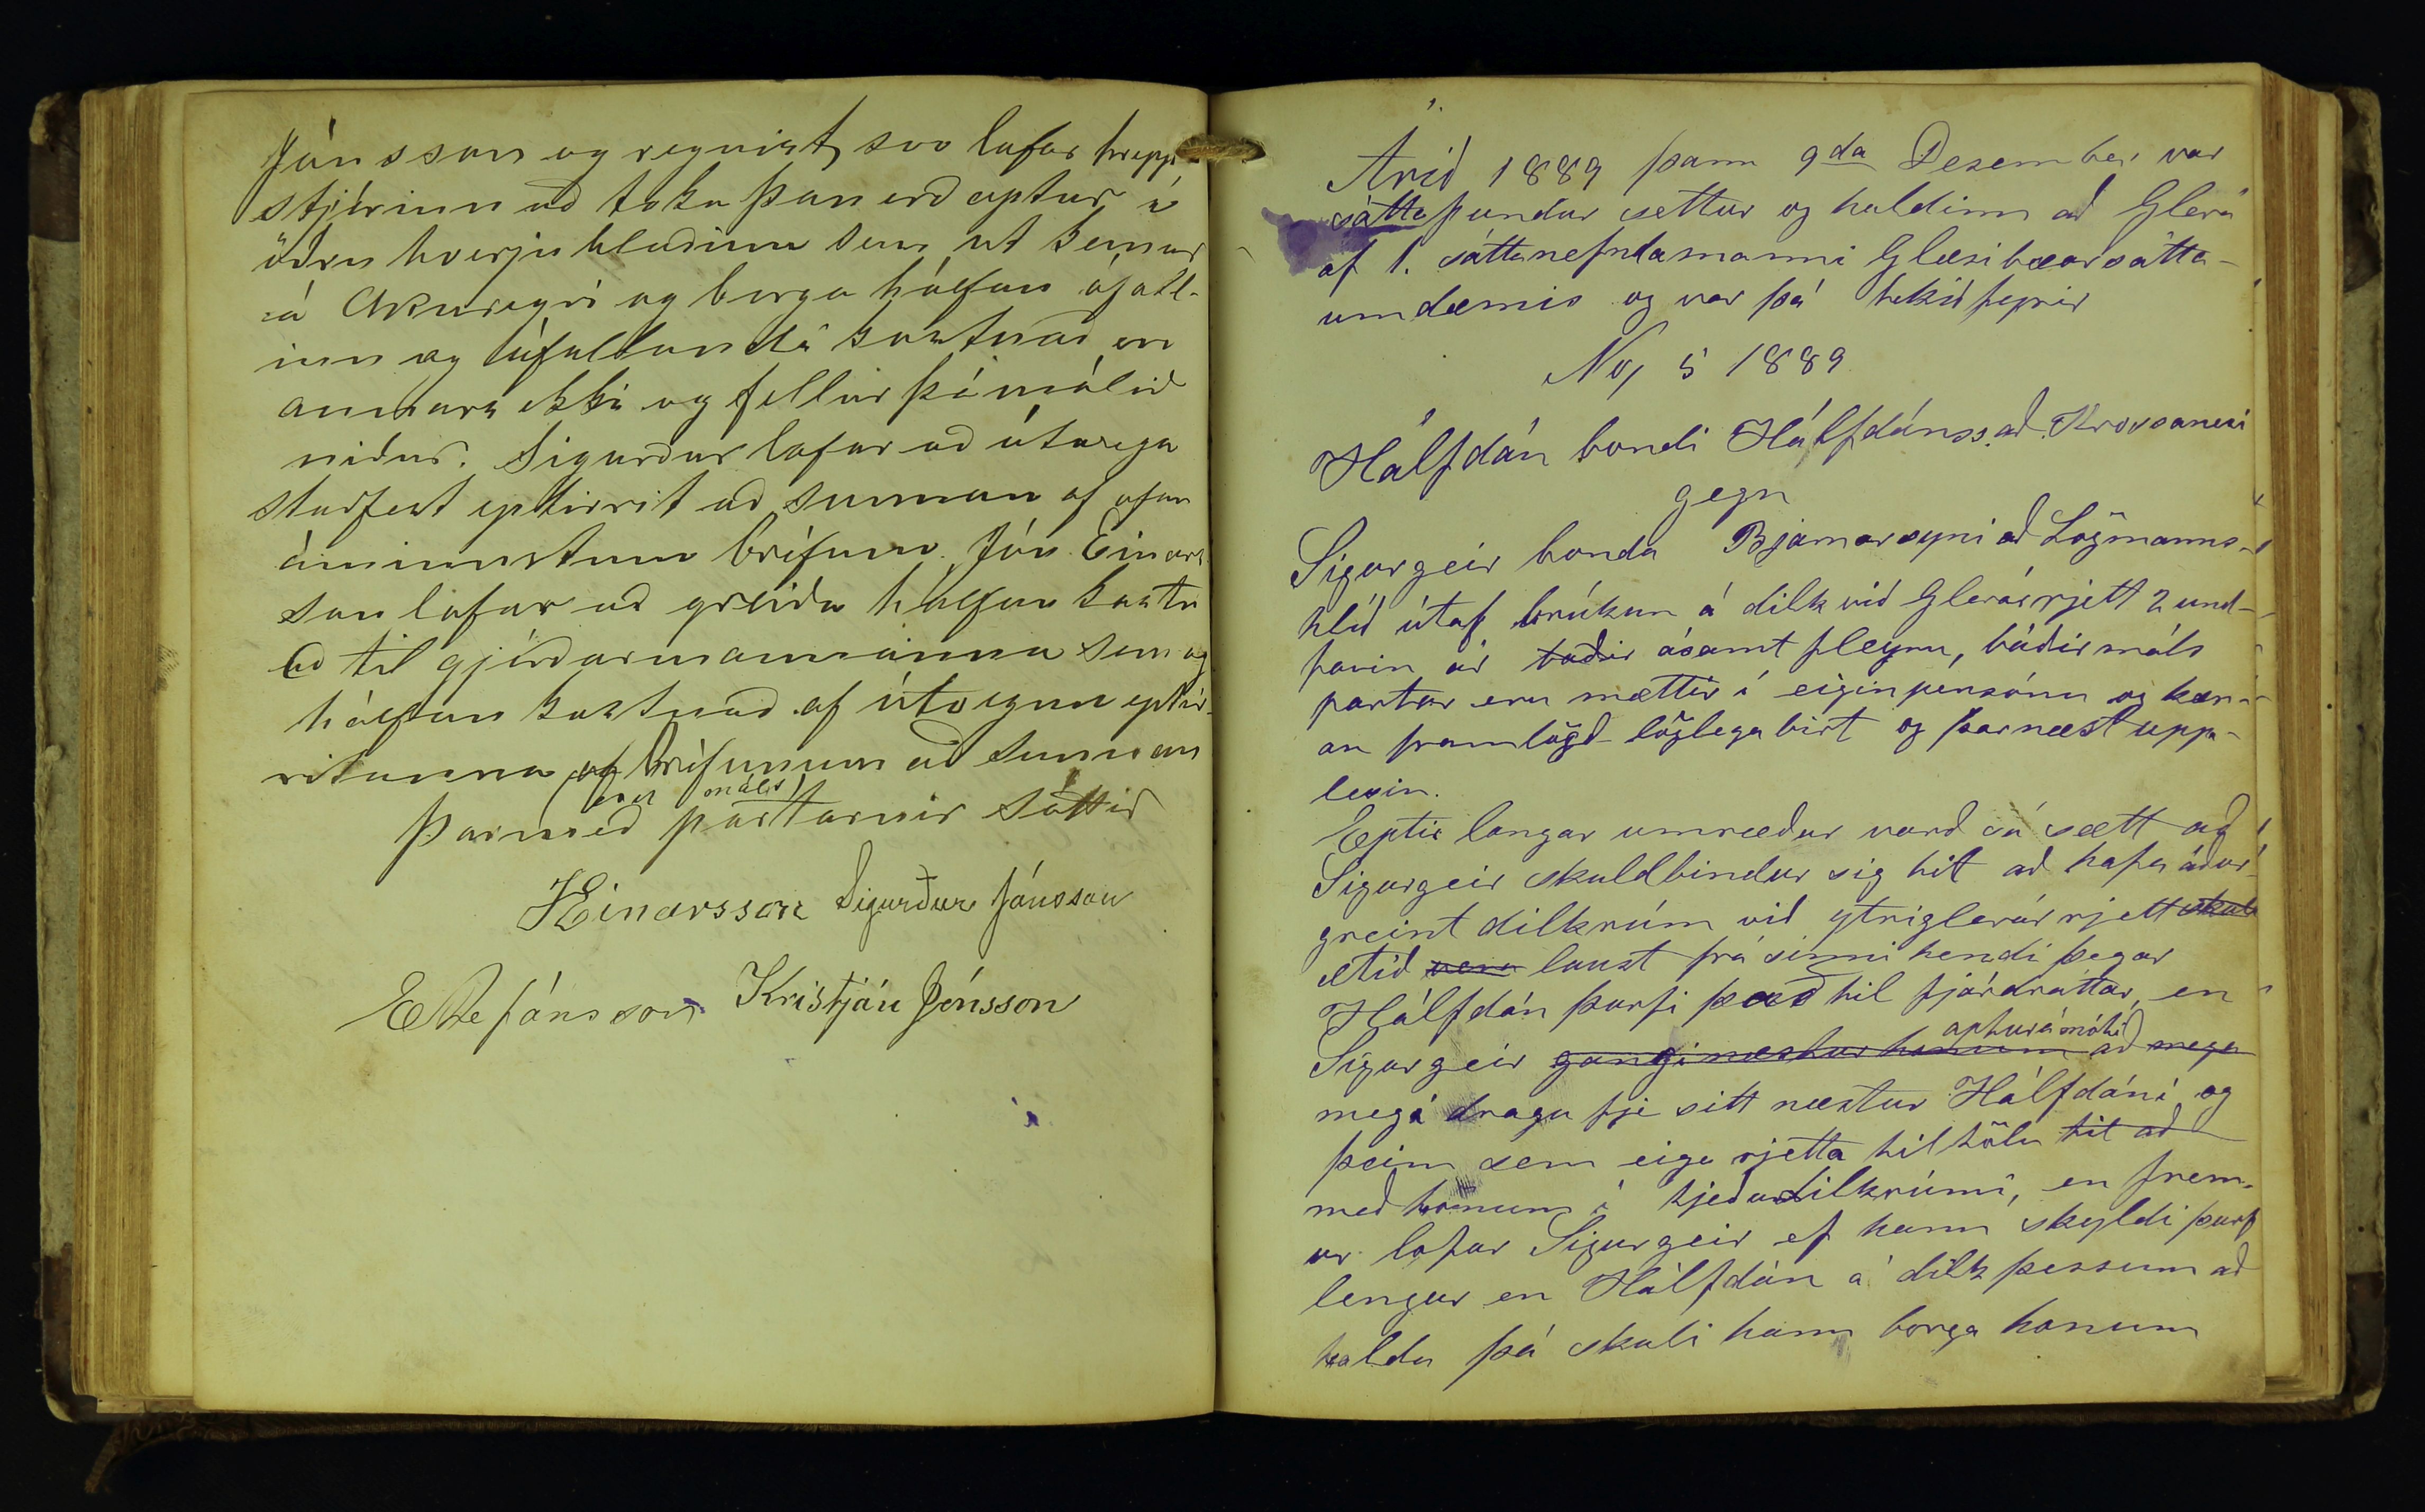 Jónsson og reynist svo lofar hrepp
stjórinn að taka þau orð aptur í
öðru hverju blaðinu sem út kemur
á Akureyri og borga hálfan áfall-
inn og áfallandi kostnað en
annars ekki og fellur þá málið
niður. Sigurður lofar að útvega
staðfest eptirrit að sunnan af ofan
áminnstum bréfum. Jón Einars
son lofar að greiða hálfan kostn
að til gjörðarmannanna sem og
hálfan kostnað af útvegun eptir-
ritanna af brjefunum að sunnan
eru máls
Þarmeð partarnir sáttir
JEinarsson Sigurður Jónsson
EStefánsson Kristján Jónsson
Árið 1889 þann 9da Desember var
sáttafundur settur og haldinn að Glerá
af 1. sáttanefndamanni Glæsibæarsátta-
umdæmis og var þá tekið fyrir
No, 5 1889
Hálfdán bondi Hálfdánss. að Krossanesi
gegn
Sigurgeir bonda Bjarnarsyni að Lögmanns-
hlíð útaf brúkun á dilk við Glerárrjett 2 und-
farin ár baðir ásamt fleyru, báðir máls
partar eru mættir í eigin persónu og kær-
an framlögð löglega birt og þarnæst upp-
lesin.
Eptir langar umræður varð sú sætt að
Sigurgeir skuldbindur sig til að hafa áður-
greint dilkrúm við ytriglerár rjett skal
ætið vera laust frá sinni hendi þegar
Hálfdán þurfi það til fjárdráttar, en
apturámóti
Sigurgeir gangi næstur honum að mega
megi draga fje sitt næstur Hálfdáni og
þeim sem eiga rjetta tiltölu til að
með honum í tjeðu dilkrúmi, en frem-
ur lofar Sigurgeir ef hann skyldi þurf
lengur en Hálfdán á dilk þessum að
halda þá skuli hann borga honum